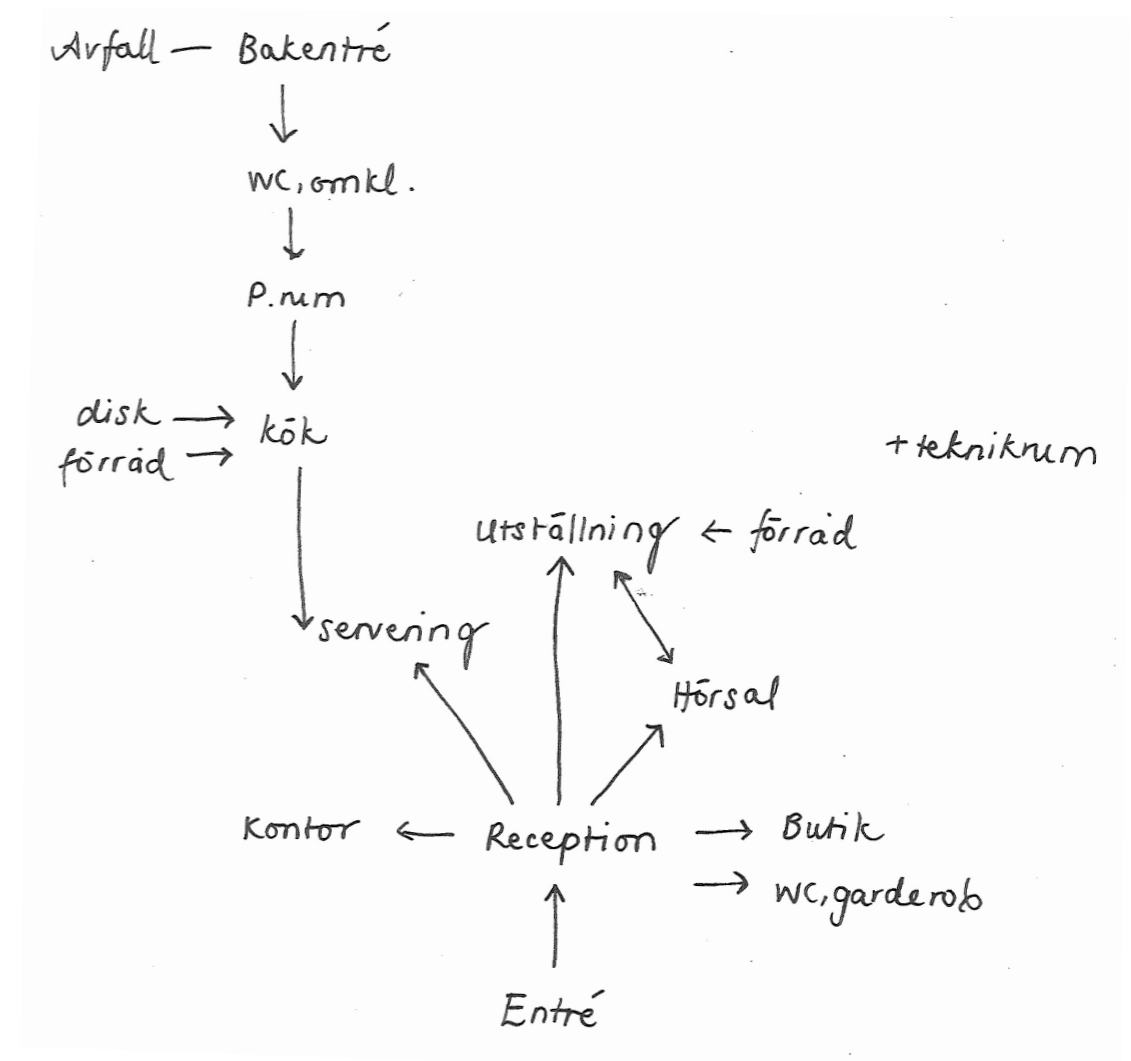 Avfall — Bakentré
↓
wc, omkl.
↓
P.rum
↓
disk → kök
förråd →
+ teknikrum
utställning ← förråd
servering
Hörsal
Kontor ← Reception → Butik
→ wc, garderob
↑
Entré